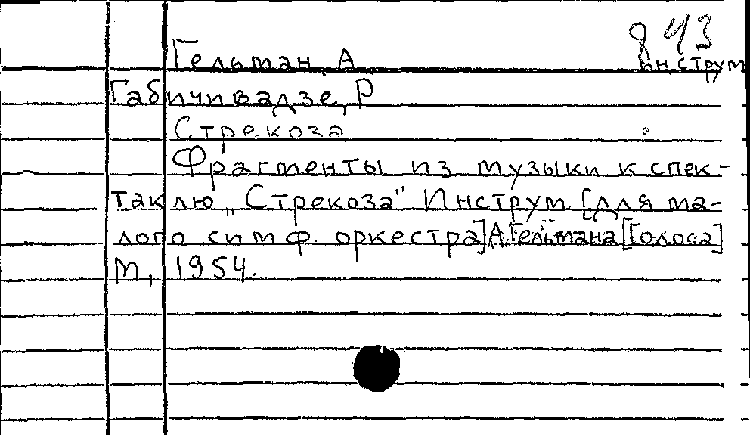 843
инструм
Гельман, А
Габичивадзе, Р
Стрекоза
Фрагменты из музыки к спек-
таклю „Стрекоза" Инструм [для ма-
лого симф. оркестра] А. Гельмана [Голоса]
М, 1954.